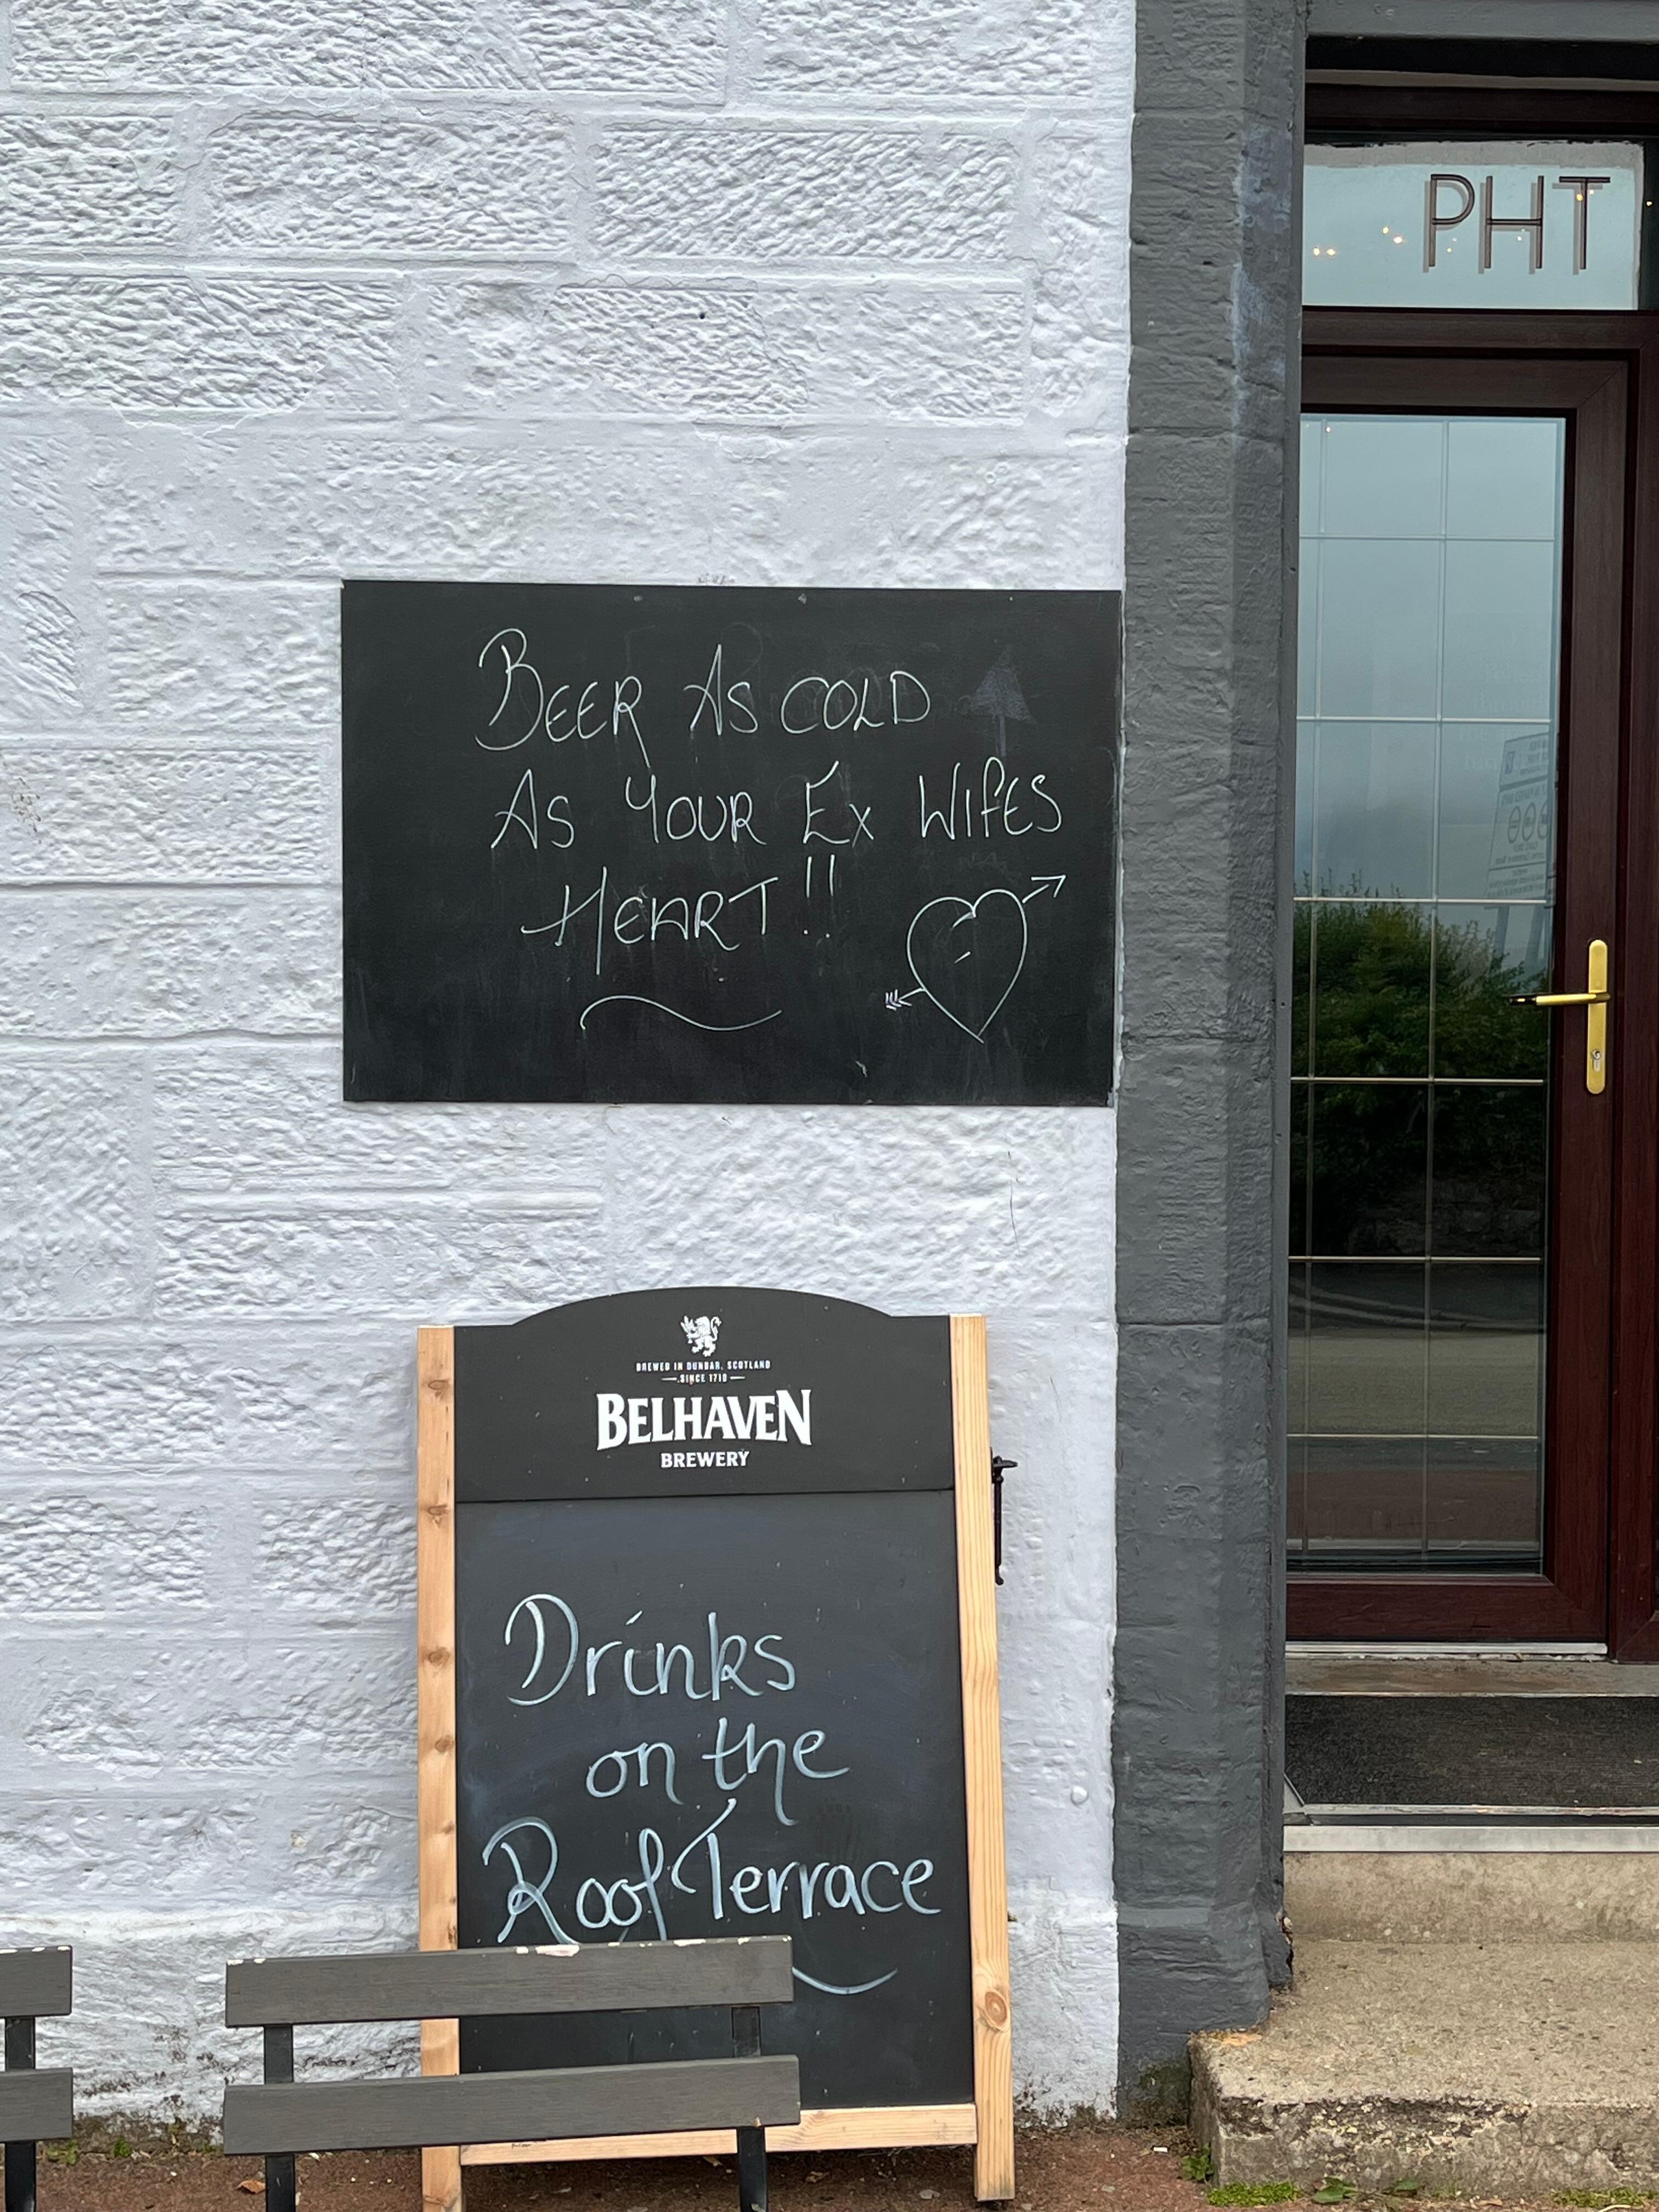 PHT
BEER AS COLD
AS YOUR EX WIFES
HEART!!
BREWED IN DUNBAR, SCOTLAND
SINCE 1719
BELHAVEN
BREWERY
Drinks
on the
Roof Terrace